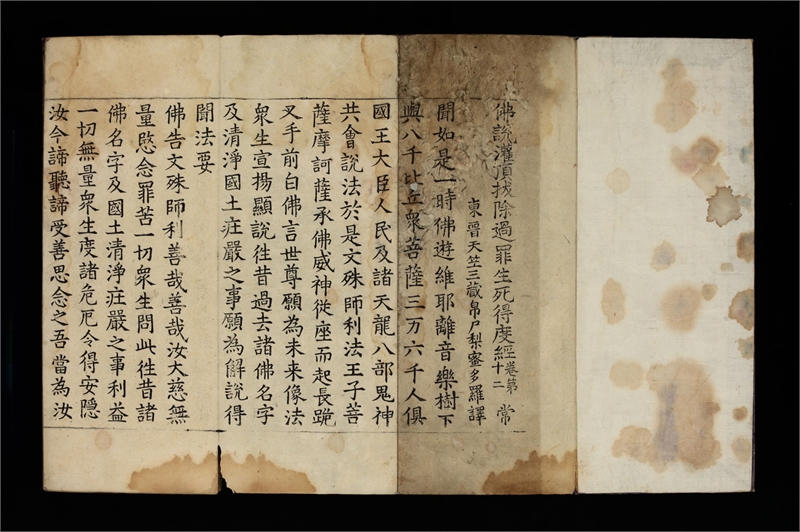 佛說灌頂拔除過罪生死得度經卷第十二 常
東晉天竺三藏帛尸梨蜜多羅譯
聞如是一時佛遊維耶離音樂樹下
與八千比丘衆菩薩三万六千人俱
國王大臣人民及諸天龍八部鬼神
共會說法於是文殊師利法王子菩
薩摩訶薩承佛威神從座而起長跪
叉手前白佛言世尊願為未来像法
衆生宣揚顯說往昔過去諸佛名字
及清淨國土莊嚴之事願為解說得
聞法要
佛告文殊師利善哉善哉汝大慈無
量愍念罪苦一切衆生問此往昔諸
佛名字及國土清淨莊嚴之事利益
一切無量衆生度諸危厄令得安隱
汝今諦聽諦受善思念之吾當為汝